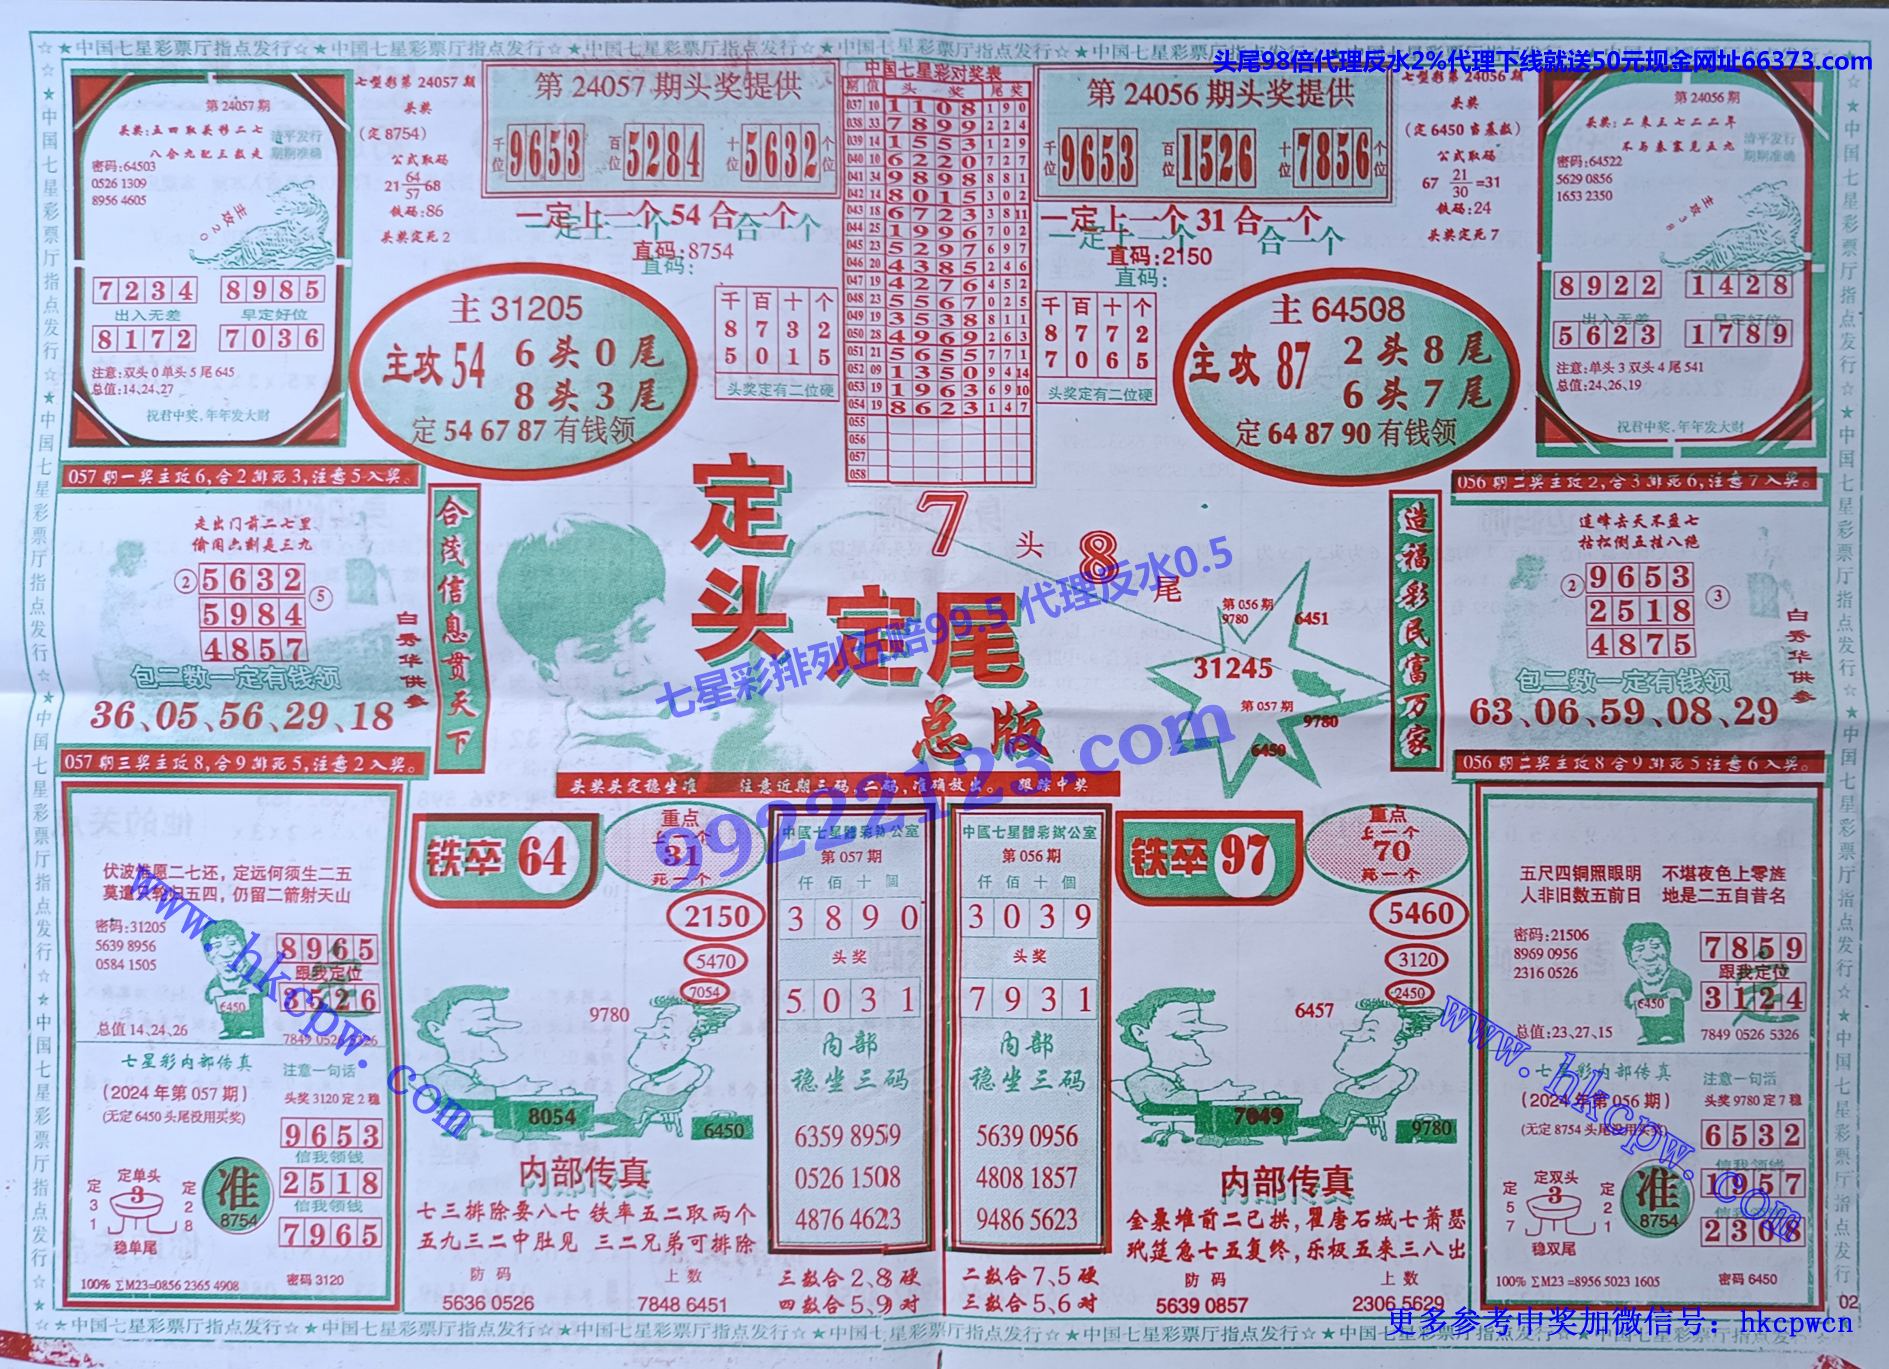 ☆★中国七星彩票厅指点发行☆★中国七星彩票厅指点发行☆★中国七星彩票厅指点发行☆★中国七星彩票厅指点发行☆
头尾98倍代理反水2%代理下线就送50元现金网址66373.com
第 24057 期
头奖:五四取头移二七
八合九配三数走
清平发行
期期准确
密码:64503
0526 1309
8956 4605
主攻20
7234 8985
出入无差 早定好位
8172 7036
注意:双头 0 单头 5 尾 645
总值:14、24、27
祝君中奖,年年发大财
七型彩第 24057 期
头奖
(定 8754)
公式取码
21 64/57 68
铁码:86
头奖定死 2
第 24057 期头奖提供
千位 9653 百位 5284 十位 5632 个位
一定上一个 54 合一个
直码:8754
主 31205
主攻 54 6 头 0 尾
8 头 3 尾
定 54 67 87 有钱领
千百十个
8732
5015
头奖定有二位硬
中国七星彩对奖表
期 值 头奖 尾奖
037 10 1108 190
038 33 7899 224
039 14 1553 129
040 10 6220 727
041 34 9898 881
042 14 8015 302
043 18 6723 3811
044 25 1996 702
045 23 5297 697
046 20 4385 246
047 19 4276 452
048 23 5567 025
049 19 3538 811
050 28 4969 263
051 21 5655 771
052 09 1350 9414
053 19 1963 6910
054 19 8623 147
055
056
057
058
第 24056 期头奖提供
千位 9653 百位 1526 十位 7856 个位
一定上一个 31 合一个
直码:2150
千百十个
8772
7065
头奖定有二位硬
主 64508
主攻 87 2 头 8 尾
6 头 7 尾
定 64 87 90 有钱领
七型彩第 24056 期
头奖
(定 6450 当基数)
公式取码
67 21/30 =31
铁码:24
头奖定死 7
第 24056 期
头奖:二来三七二二年
不与秦塞见五九
清平发行
期期准确
密码:64522
5629 0856
1653 2350
主攻38
8922 1428
出入无差 早定好位
5623 1789
注意:单头 3 双头 4 尾 541
总值:24、26、19
祝君中奖,年年发大财
057 期一奖主攻 6,合 2 排死 3,注意 5 入奖。
走出门前二七里
偷闲出割是三九
② 5632
5984 ⑤
4857
包二数一定有钱领
36、05、56、29、18
白秀华供参
合茂信息贯天下
定头定尾
总版
7 头 8 尾
七星彩排列五赔99.5 代理反水0.5
99222123.com
第 056 期
9780
6451
31245
第 057 期
9780
6450
造福彩民富万家
056 期二奖主攻 2,合 3 排死 6,注意 7 入奖。
连峰去天不盈七
枯松倒五挂八绝
② 9653
2518 ③
4875
包二数一定有钱领
63、06、59、08、29
白秀华供参
头奖头定稳坐准 注意近期三码,二码,准确放出。 跟踪中奖
057 期三奖主攻 8,合 9 排死 5,注意 2 入奖。
伏波惟愿二七还,定远何须生二五
莫遣只轮归五四,仍留二箭射天山
密码:31205
5639 8956
0584 1505
6450
8965
跟我定位
3526
总值 14、24、26
7849 0526 5326
七星彩内部传真
(2024 年第 057 期)
(无定 6450 头尾没用买奖)
注意一句话
头奖 3120 定 2 稳
9653
信我领钱
2518
信我领钱
7965
定单头
定31 3 定28
稳单尾
准
8754
100% ΣM23=0856 2365 4908
密码 3120
www.hkcpw.com
铁卒 64
重点
上一个
31
死一个
2150
5470
7054
9780
8054
6450
内部传真
七三排除要八七 铁率五二取两个
五九三二中肚见 三二兄弟可排除
防码 上数
5636 0526 7848 6451
中國七星體彩辦公室
第 057 期
仟佰十個
3890
头奖
5031
内部
稳坐三码
6359 8959
0526 1508
4876 4623
三数合 2、8 硬
四数合 5、9 对
中國七星體彩辦公室
第 056 期
仟佰十個
3039
头奖
7931
内部
稳坐三码
5639 0956
4808 1857
9486 5623
二数合 7、5 硬
三数合 5、6 对
铁卒 97
重点
上一个
70
死一个
5460
3120
2450
6457
7049
9780
内部传真
金粟堆前二已拱,瞿唐石城七萧瑟
玳筵急七五复终,乐极五来三八出
防码 上数
5639 0857 2306 5629
056 期二奖主攻 8 合 9 排死 5 注意 6 入奖。
五尺四铜照眼明 不堪夜色上零旌
人非旧数五前日 地是二五自昔名
密码:21506
8969 0956
2316 0526
6450
7859
跟我定位
3124
总值:23、27、15
7849 0526 5326
七星彩内部传真
(2024 年第 056 期)
(无定 8754 头尾没用买奖)
注意一句话
头奖 9780 定 7 稳
6532
信我领钱
1957
2308
定双头
定57 3 定21
稳双尾
准
8754
100% ΣM23 =8956 5023 1605
密码 6450
www.hkcpw.com
02
更多参考中奖加微信号：hkcpwcn
☆★中国七星彩票厅指点发行☆★中国七星彩票厅指点发行☆★中国七星彩票厅指点发行☆★中国七星彩票厅指点发行☆